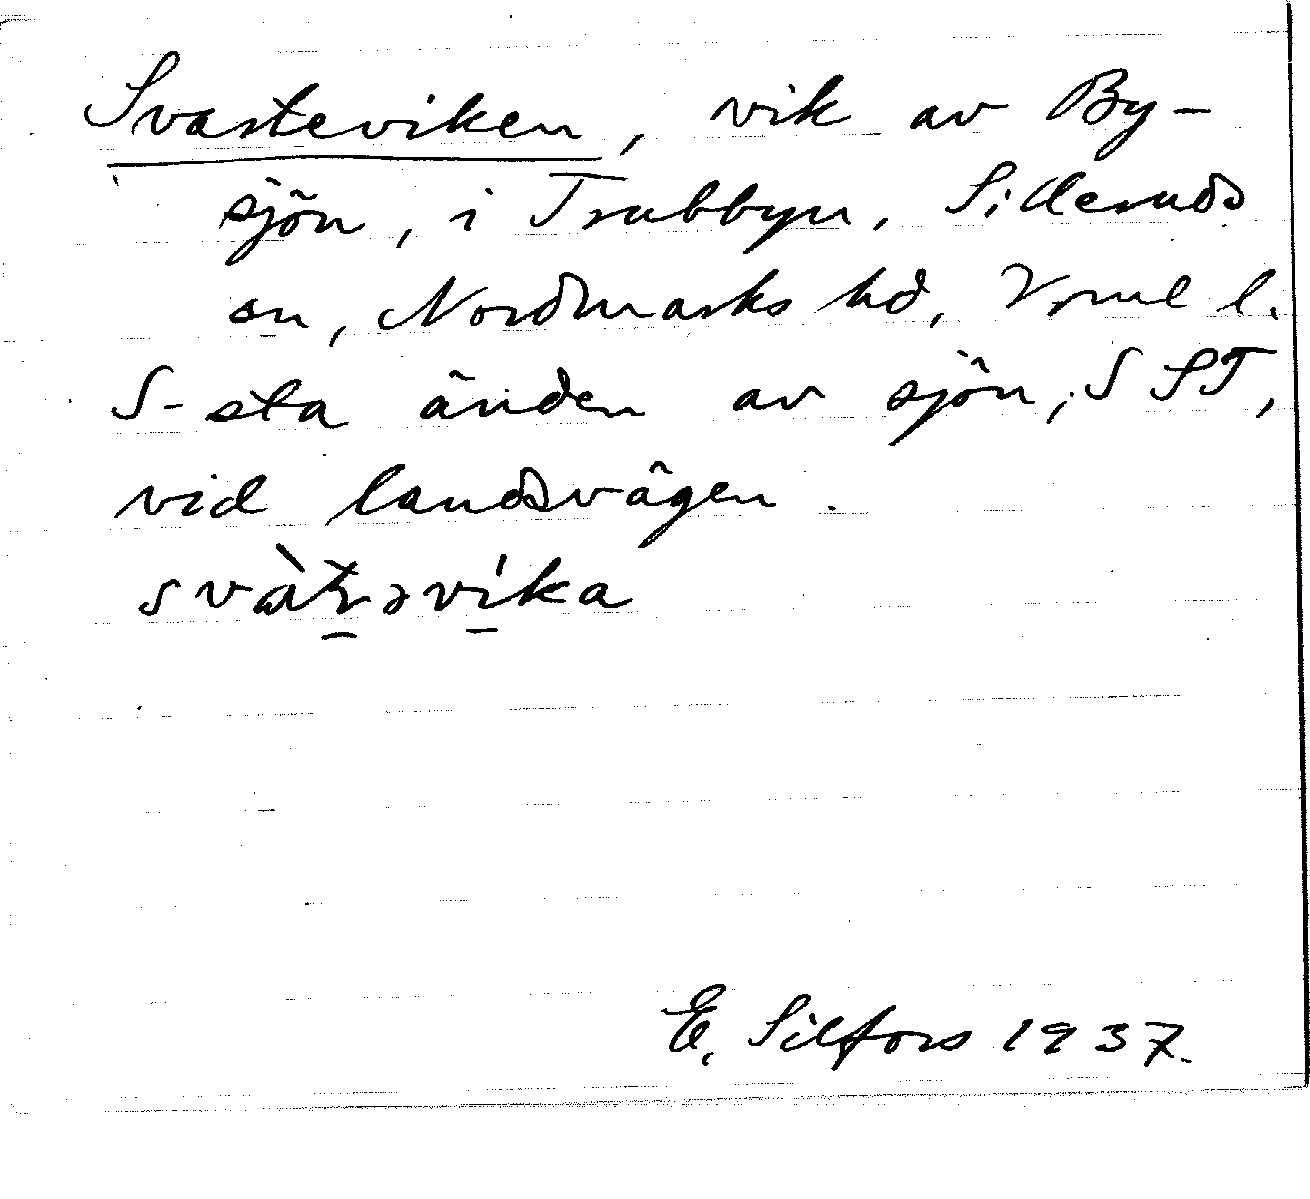 Svarteviken, vik av By-
sjön, i Trubbyn, Silleruds
sn, Nordmarks hd, Vrml l.
S-sta änden av sjön, S ST,
vid landsvägen.
E. Silfors 1937.